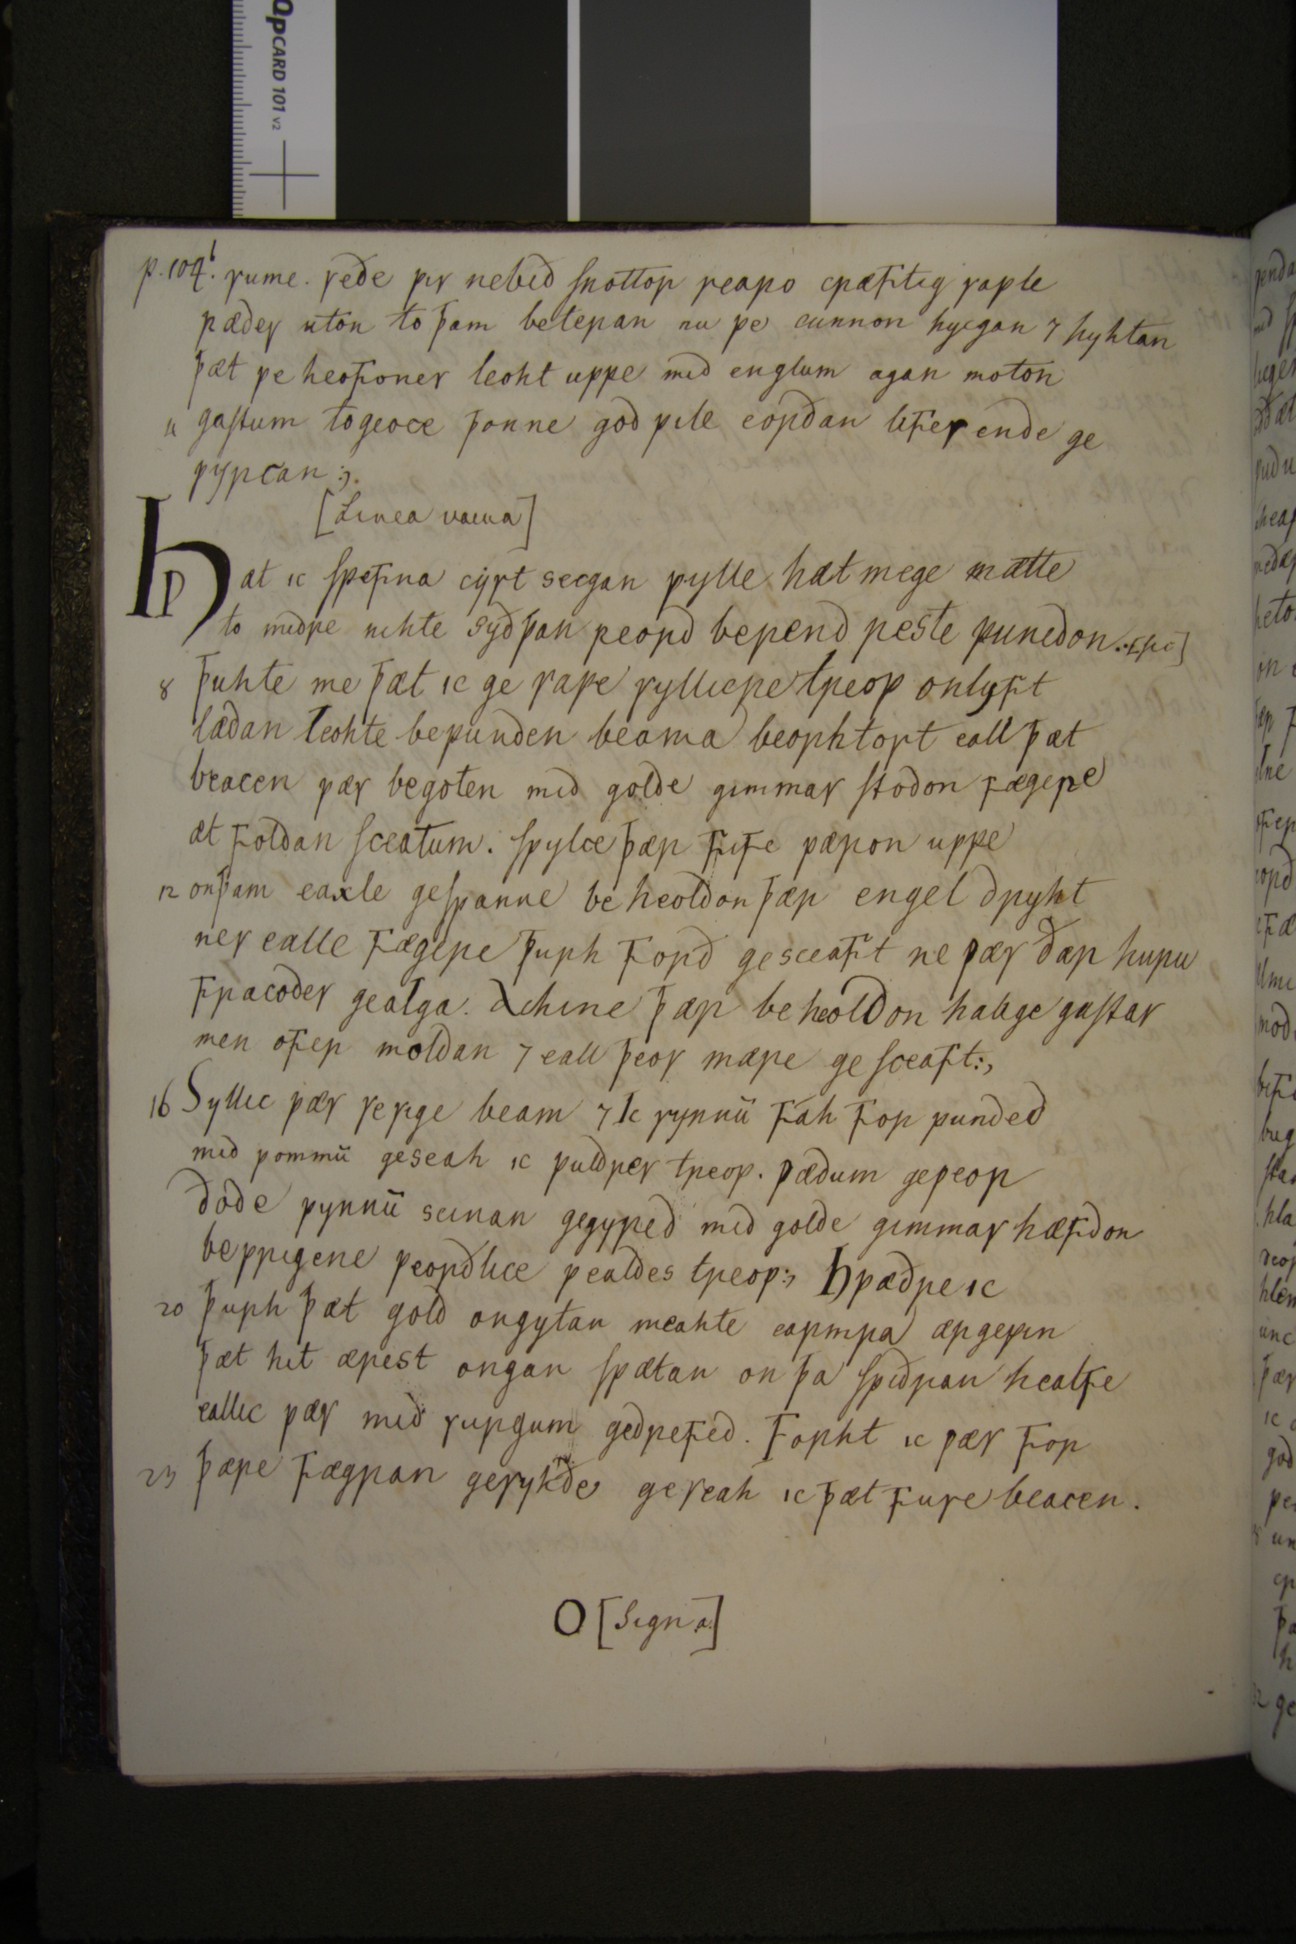 CARD 101 v2
p. 104.b sume. seðe ƿis nebið snottor searo cræftig saƿle
ƿædes uton to þam beteran nu ƿe cunnon hycgan ⁊ hyhtan
þæt ƿe heofones leoht uppe mid englum agan moton
4 gastum togeoce þonne god ƿile eorðan lifes ende ge
ƿyrcan :,.
[Linea vacua]
Hƿ æt ic sƿefna cyst secgan ƿylle hæt mege mætte
to midre nihte syðþan reord berend reste ƿunedon.. [sic]
8 þuhte me þæt ic ge saƿe syllicre treoƿ onlyft
lædan leohte beƿunden beama beorhtost eall þæt
beacen ƿæs begoten mid golde gimmas stodon fægere
æt foldan sceatum. sƿylce þær fife ƿæron uppe
12 onþam eaxle gespanne beheoldon þær engel dryht
nes ealle fægere þurh forð gesceaft ne ƿæs ðær huru
fracodes gealga. Achine þær beheoldon halige gastas
men ofer moldan ⁊ eall þeos mære gesceaft:,
16 Syllic ƿæs se sige beam ⁊ Ic synnū fah for ƿunded
mid ƿommū geseah ic ƿuldres treoƿ. ƿædum geƿeor
ðode ƿynnū scinan gegyred mid golde gimmas hæfdon
beƿrigene ƿeorðlice ƿealdes treoƿ:, Hƿæðre ic
20 þurh þæt gold ongytan meahte earmra ærgeƿin
þæt hit ærest ongan sƿætan on þa sƿiðran healfe
eallic ƿæs mid surgum gedrefed. Forht ic ƿæs for
23 þære fægran gesyhðe geseah ic þæt fuse beacen.
O [Signa.]